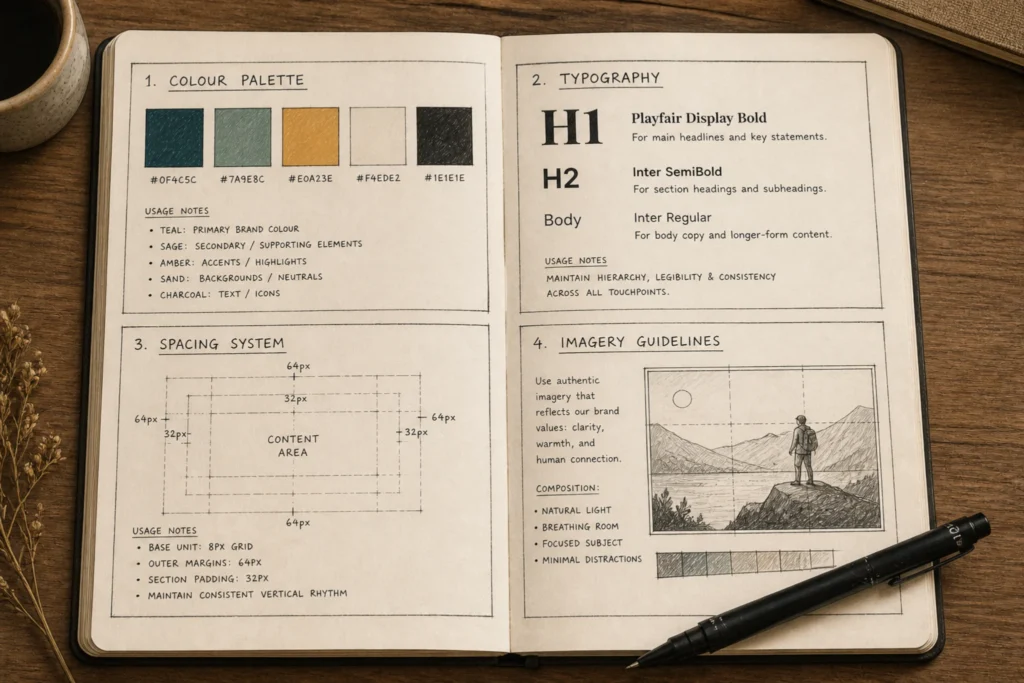 1. COLOUR PALETTE
#0F4C5C #7A9E8C #E0A23E #F4EDE2 #1E1E1E
USAGE NOTES
• TEAL: PRIMARY BRAND COLOUR
• SAGE: SECONDARY / SUPPORTING ELEMENTS
• AMBER: ACCENTS / HIGHLIGHTS
• SAND: BACKGROUNDS / NEUTRALS
• CHARCOAL: TEXT / ICONS
2. TYPOGRAPHY
H1 Playfair Display Bold
For main headlines and key statements.
H2 Inter SemiBold
For section headings and subheadings.
Body Inter Regular
For body copy and longer-form content.
USAGE NOTES
MAINTAIN HIERARCHY, LEGIBILITY & CONSISTENCY
ACROSS ALL TOUCHPOINTS.
3. SPACING SYSTEM
64px
32px
64px 64px
32px 32px
CONTENT
AREA
64px
USAGE NOTES
• BASE UNIT: 8PX GRID
• OUTER MARGINS: 64PX
• SECTION PADDING: 32PX
• MAINTAIN CONSISTENT VERTICAL RHYTHM
4. IMAGERY GUIDELINES
Use authentic
imagery that
reflects our brand
values: clarity,
warmth, and
human connection.
COMPOSITION:
• NATURAL LIGHT
• BREATHING ROOM
• FOCUSED SUBJECT
• MINIMAL DISTRACTIONS